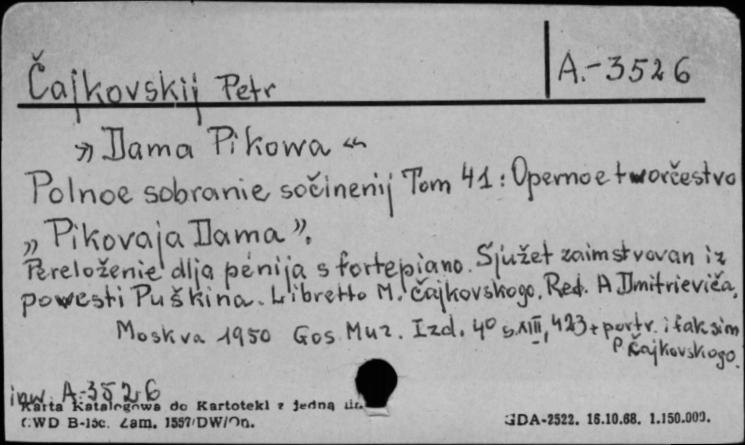 Čajkovskij Petr
A.-3526
„Dama Pikowa“
Polnoe sobranie sočinenij Tom 41: Opernoe tworčestvo
„Pikovaja Dama”.
Pereloženie dlja penija s fortepiano. Sjužet zaimstvovan iz
powesti Puškina. Libretto M. Čajkovskogo. Red. A Dmitrieviča,
Moskva 1950 Gos. Muz. Izd. 4º s. XIII, 423 + portr. i faksim
P Čajkovskogo.
inw. A-3526
Karta Katalogowa do Kartoteki z jedną
CWD B-15c. Zam. 1557/DW/
GDA-2522. 16.10.68. 1.150.000.